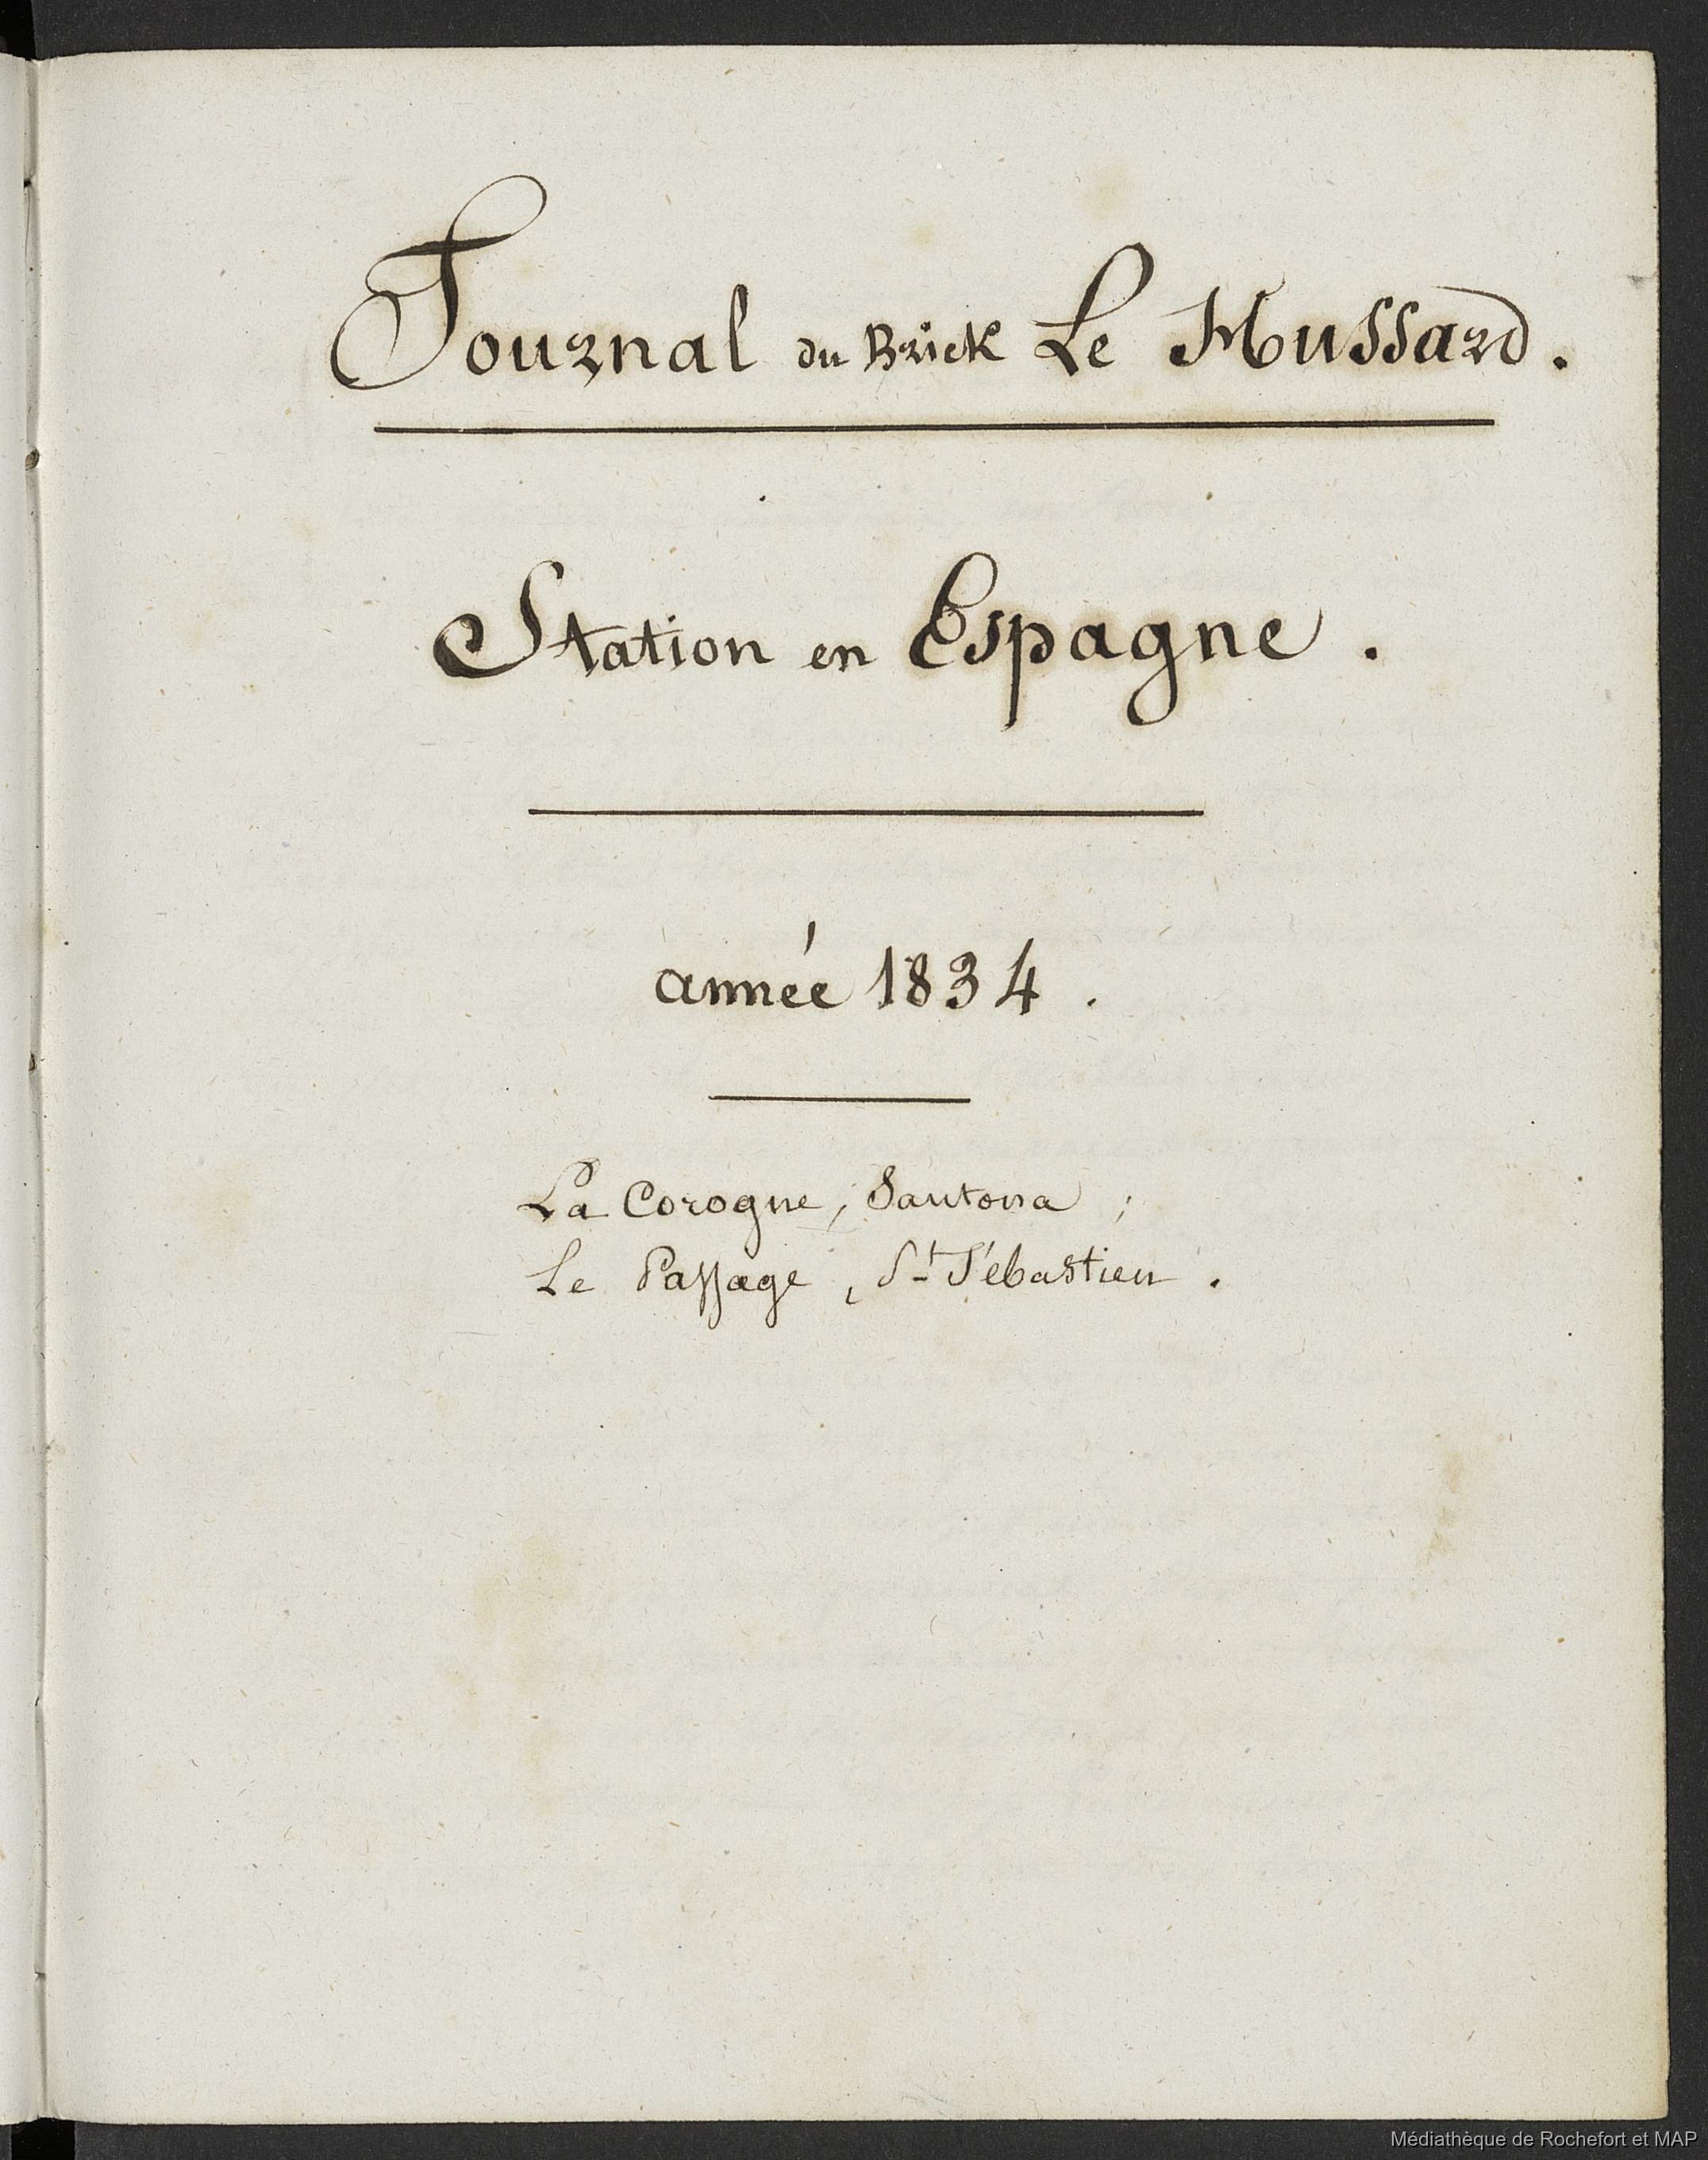 Journal du Brick Le Hussard.
Station en Espagne.
année 1834.
La Corogne, Santona ;
Le Passage, St Sébastien.
Médiathèque de Rochefort et MAP